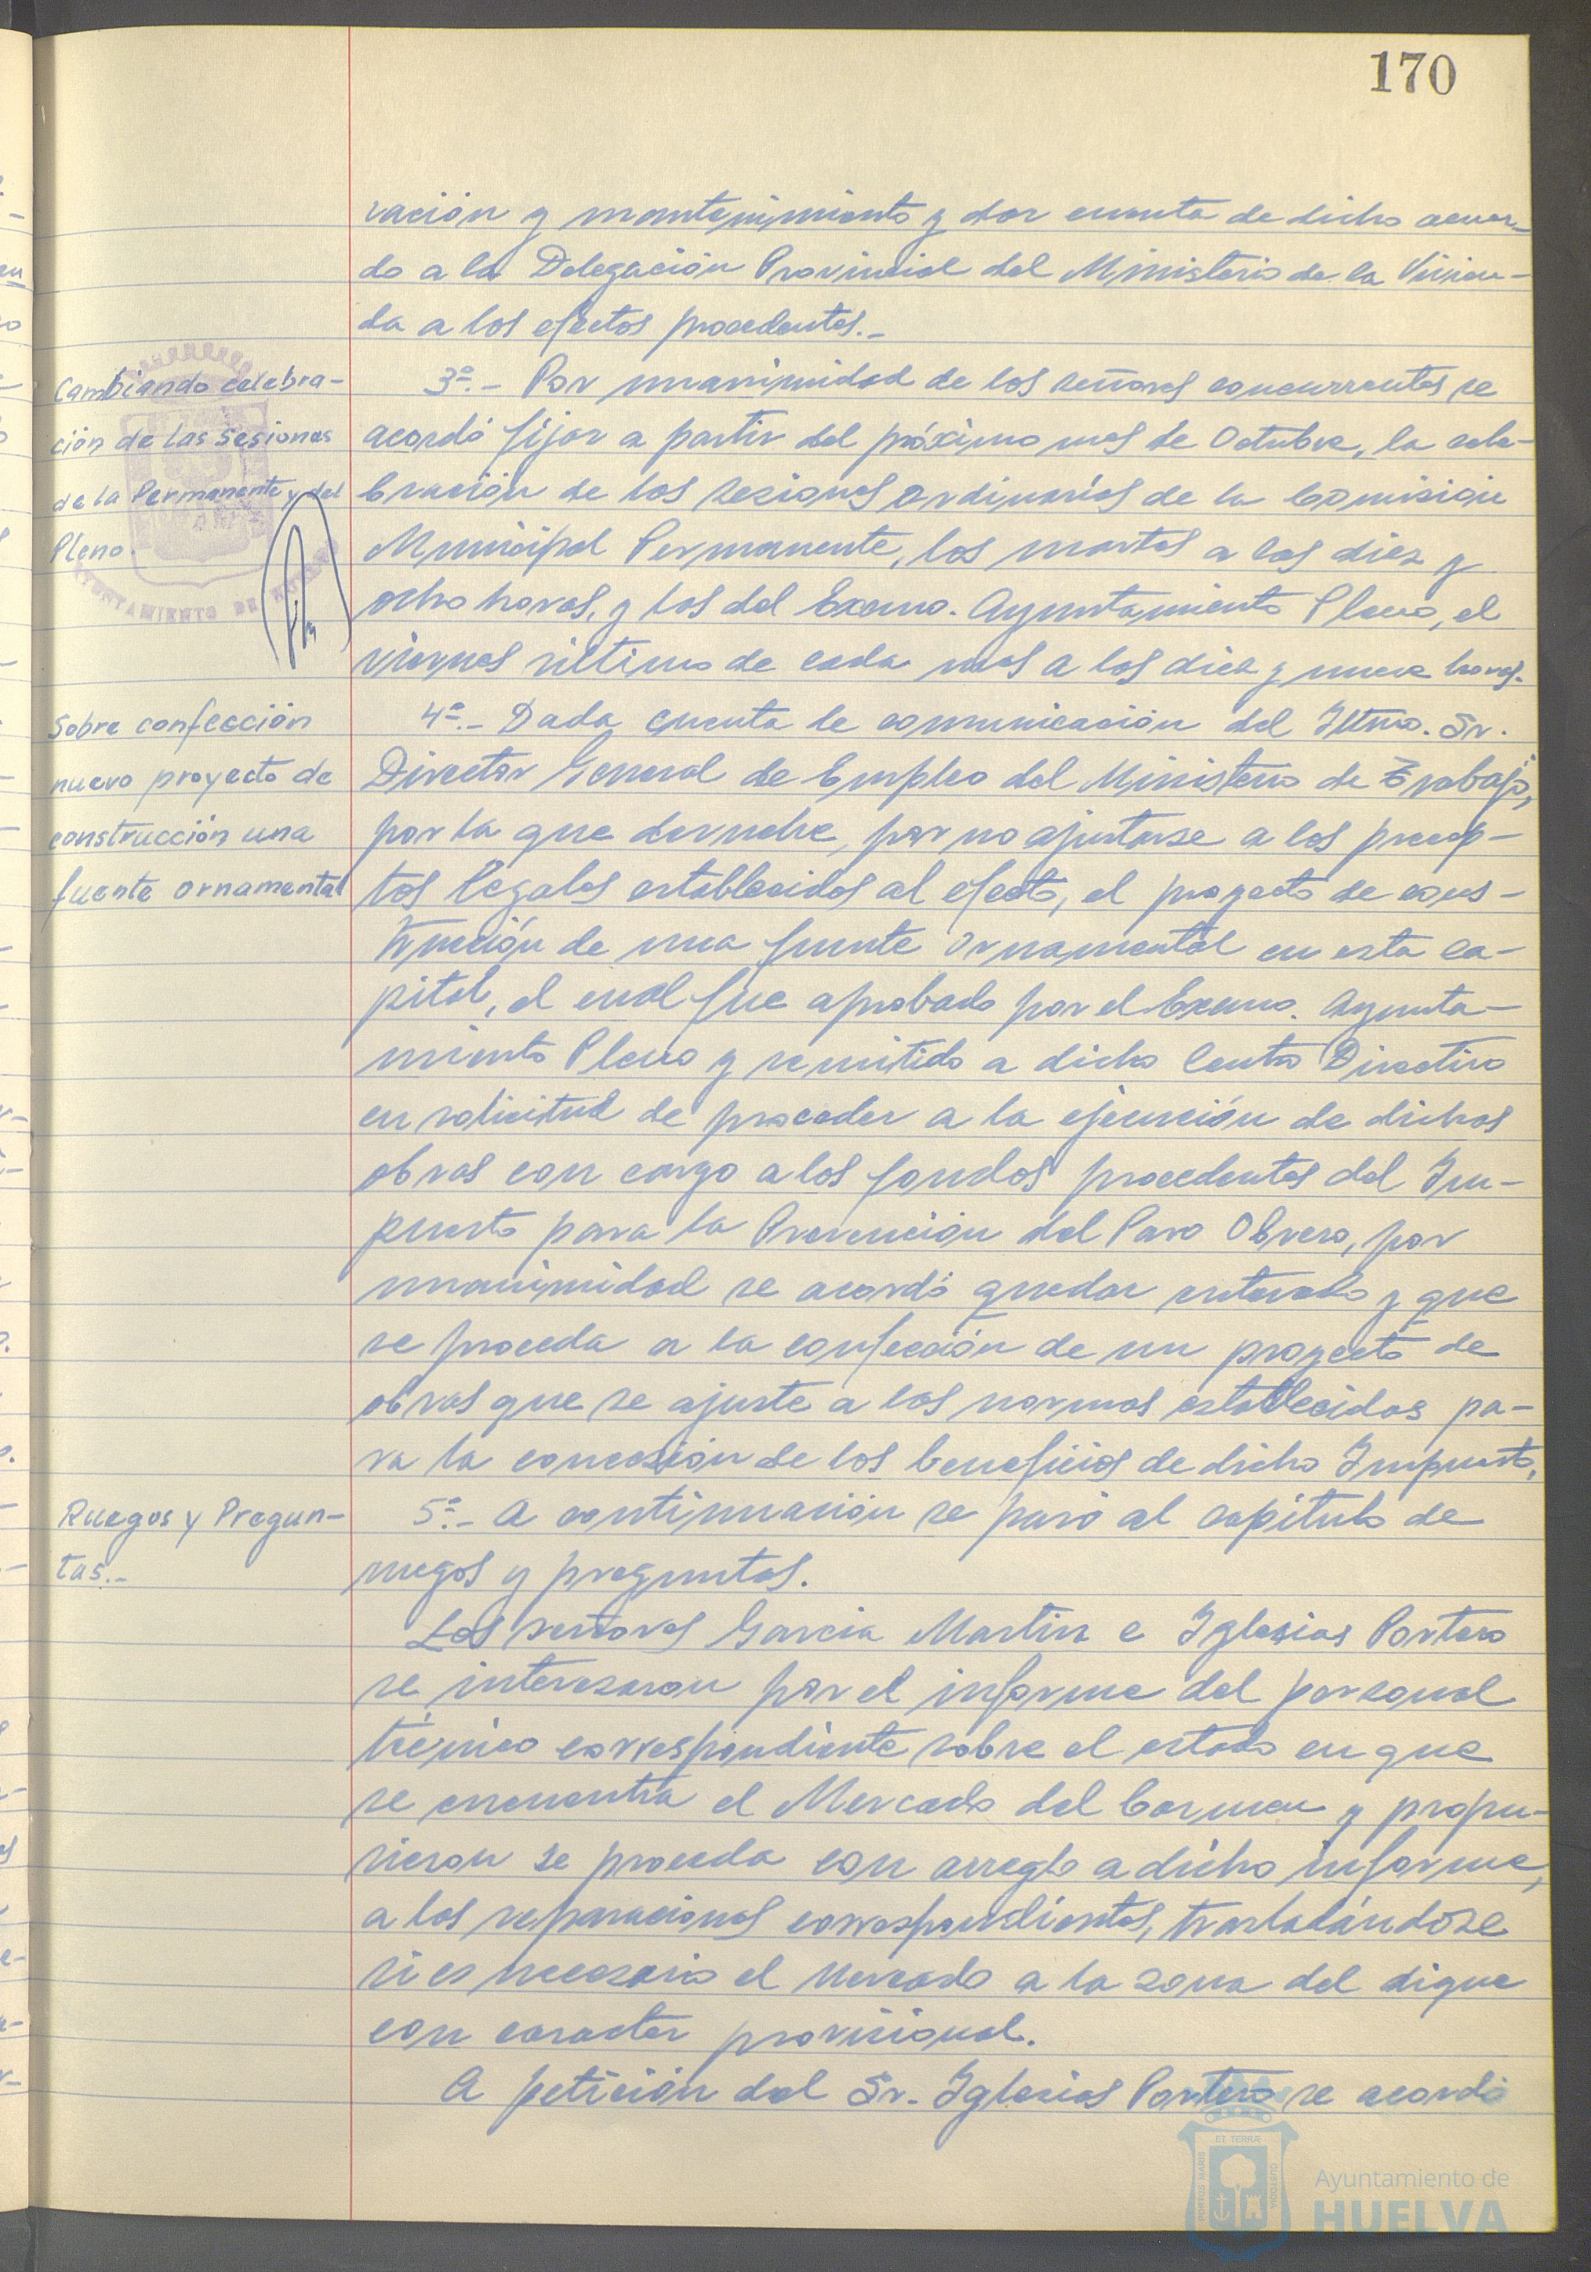 170
vación y mantenimiento y dar cuenta de dicho acuer-
do a la Delegación Provincial del Ministerio de la Vivien-
da a los efectos procedentes.-
Cambiando celebra-
ción de las sesiones
de la Permanente y del
Pleno.
3º.- Por unanimidad de los señores concurrentes se
acordó fijar a partir del próximo mes de Octubre, la cele-
bración de las sesiones ordinarias de la Comisión
Municipal Permanente, los martes a las diez y
ocho horas, y las del Excmo. Ayuntamiento Pleno, el
viernes último de cada mes a las diez y nueve horas.
Sobre confección
nuevo proyecto de
construcción una
fuente ornamental
4º.- Dada cuenta de comunicación del Iltmo. Sr.
Director General de Empleo del Ministerio de Trabajo,
por la que devuelve, por no ajustarse a los precep-
tos legales establecidos al efecto, el proyecto de cons-
trucción de una fuente ornamental en esta ca-
pital, el cual fue aprobado por el Excmo. Ayunta-
miento Pleno y remitido a dicho Centro Directivo
en solicitud de proceder a la ejecución de dichas
obras con cargo a los fondos procedentes del Im-
puesto para la Prevención del Paro Obrero, por
unanimidad se acordó quedar enterado y que
se proceda a la confección de un proyecto de
obras que se ajuste a las normas establecidas pa-
ra la concesión de los beneficios de dicho Impuesto.
Ruegos y Pregun-
tas.-
5º.- A continuación se pasó al capítulo de
ruegos y preguntas.
Los señores Garcia Martin e Iglesias Portero
se interesaron por el informe del personal
técnico correspondiente sobre el estado en que
se encuentra el Mercado del Carmen y propu-
sieron se proceda con arreglo a dicho informe,
a las reparaciones correspondientes, trasladándose
si es necesario el Mercado a la zona del dique
con caracter provisional.
A petición del Sr. Iglesias Portero se acordó
AYUNTAMIENTO DE HUELVA
PORTUS MARIS
ET TERRÆ
CUSTODIA
Ayuntamiento de
HUELVA